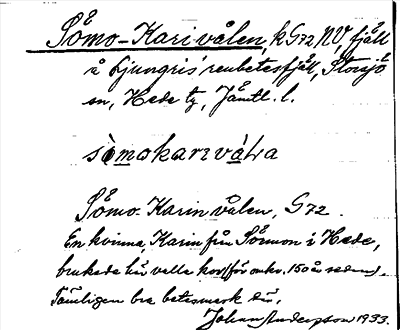 Såmo-Karivålen, k G72 NV, fjäll
å Ljungris' renbetesfjäll, Storsjö
sn, Hede tg, Jämtl. l.
sòmokarɪvàlra
Såmo-Karin vålen, G72.
En kvinna, Karin från Sömon i Hede,
brukade hit valla kor (för omkr. 150 år sedan).
Tämligen bra betesmark där.
Johan Andersson 1933.